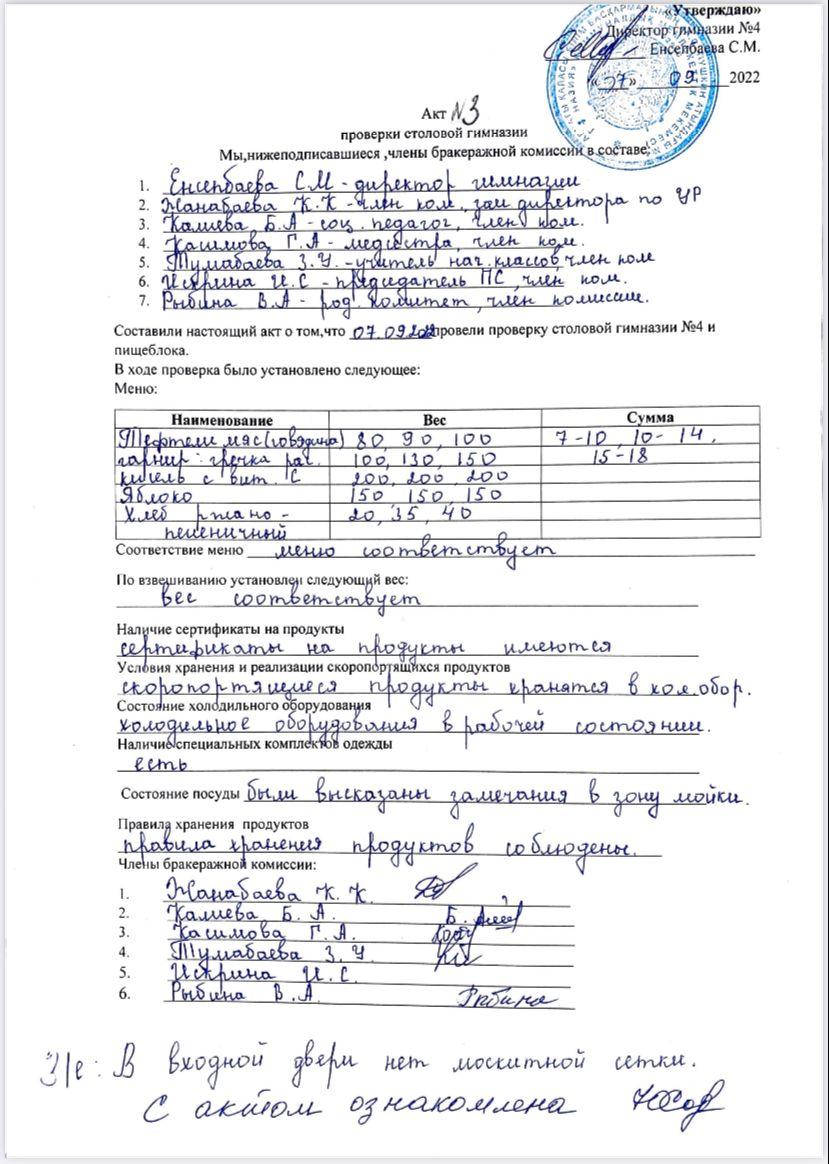 «Утверждаю»
Директор гимназии №4
Енсепбаева С.М.
«07» 09 2022
Акт №3
проверки столовой гимназии
Мы,нижеподписавшиеся ,члены бракеражной комиссии в составе;
1. Енсепбаева С.М - директор гимназии
2. Жанабаева К.К - член ком., зам директора по УР
3. Калиева Б.А - соц. педагог, член ком.
4. Касимова Г.А - медсестра, член ком.
5. Тумабаева З.У. - учитель нач. классов, член ком
6. Искрина И.С - председатель ПС, член ком.
7. Рыбина В.А - род. комитет, член комиссии.
Составили настоящий акт о том,что 07.09.2022 провели проверку столовой гимназии №4 и
пищеблока.
В ходе проверка было установлено следующее:
Меню:
Наименование Вес Сумма
Тефтели мяс(говядина) 80, 90, 100 7-10, 10-14,
гарнир: гречка рас. 100, 130, 150 15-18
кисель с вит. С 200, 200, 200
Яблоко 150 150, 150
Хлеб ржано- 20, 35, 40
пшеничный
Соответствие меню меню соответствует
По взвешиванию установлен следующий вес:
вес соответствует
Наличие сертификаты на продукты
сертификаты на продукты имеются
Условия хранения и реализации скоропортящихся продуктов
скоропортящиеся продукты хранятся в хол.обор.
Состояние холодильного оборудования
холодильное оборудования в рабочей состоянии.
Наличие специальных комплектов одежды
есть
Состояние посуды были высказаны замечания в зону мойки.
Правила хранения продуктов
правила хранения продуктов соблюдены.
Члены бракеражной комиссии:
1. Жанабаева К. К.
2. Калиева Б. А.
3. Касимова Г. А.
4. Тумабаева З. У.
5. Искрина И. С.
6. Рыбина В. А. Рыбина
З/е: В входной двери нет москитной сетки.
С актом ознакомлена